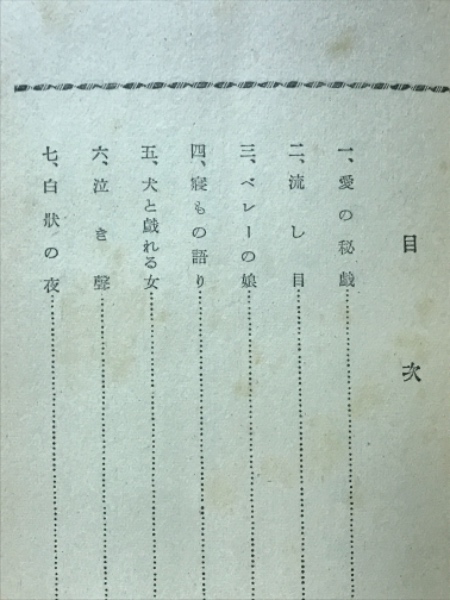 目次
一、愛の秘戯
二、流し目
三、ベレーの娘
四、寝もの語り
五、犬と戯れる女
六、泣き聲
七、白狀の夜